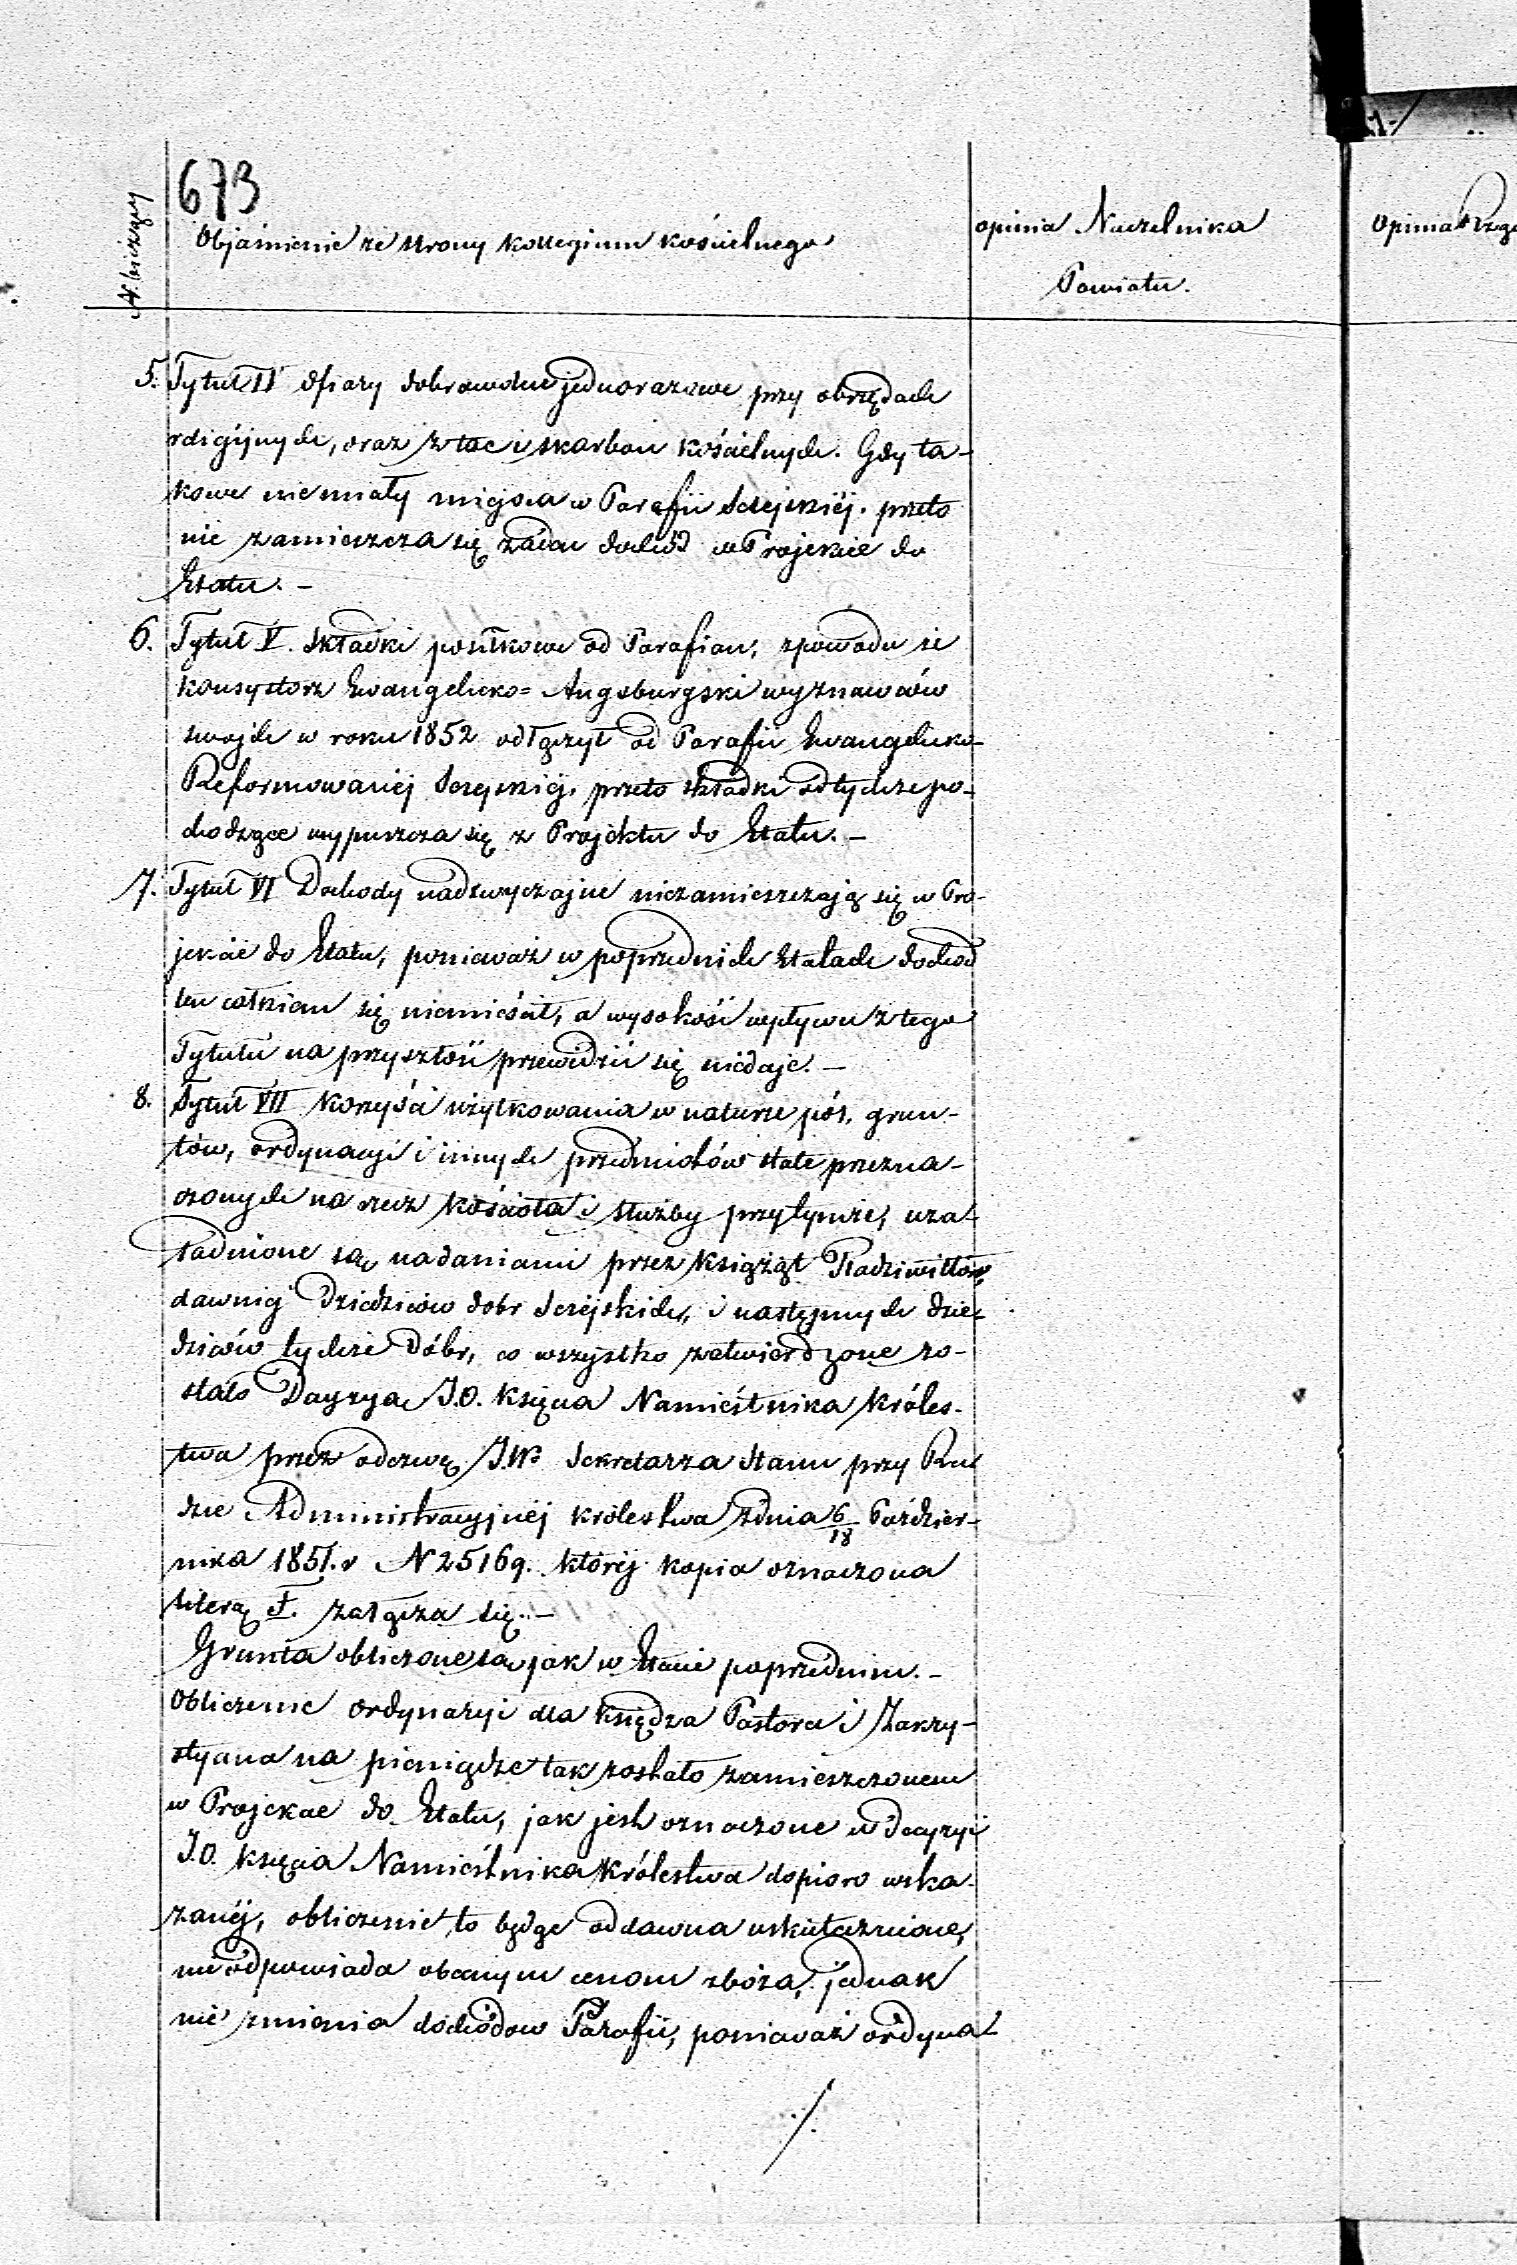 673
N. bieżący
Objaśnienie ze strony Kollegium Kościelnego
opinia Naczelnika
Powiatu.
Opinia
5. Tytuł II ofiary dobrowolne jednorazowe przy obrzędach
religijnych, oraz z tac i skarbon Kościelnych. Gdy ta-
kowe niemiały miejsca w Parafii Serejskiéj. przeto
nie zamieszcza się żaden dochód w Projekcie do
Etatu. –
6. Tytuł V. Składki posiłkowe od Parafian, zpowodu że
Konsystorz Ewangelicko= Augsburgski wyznawców
swojch w roku 1852 odłączył od Parafii Ewangelicko-
Reformowanéj Serejskiéj, przeto składki od tychże po-
chodzące wypuszcza się z Projektu do Etatu. –
7. Tytuł VI Dochody nadzwyczajne niezamieszczają się w Pro-
jekcie do Etatu, ponieważ w poprzednich Etatach dochod
ten całkiem się niemieścił, a wysokość wpływu z tego
Tytułu na przyszłość przewidzić się niedaje. –
8. Tytuł VII Korzyści użytkowania w naturze pól, grun-
tów, ordynacyi i innych przedmiotów stale przezna-
czonych na rzecz Kościoła i służby przytymże, uza-
sadnione są, nadaniami przez Książąt Radziwiłłów,
dawniej Dziedziców dobr Serejskich, i następnych dzie-
dziców tychże Dóbr, co wszystko zatwierdzone zo-
stało Decyzyą J.O. Księcia Namiestnika Króles-
twa przez odezwę J.W. Sekretarza Stanu przy Ra-
dzie Administracyjnéj Królestwa z dnia 6/18 Paździer-
nika 1851. r N 25169. któréj kopia oznaczona
literą F. załącza się. –
Grunta obliczone są jak w Etacie poprzednim. –
Obliczenie ordynaryi dla księdza Pastora i Zakry-
styana na pieniądze tak zostało zamieszczonem
w Projekcie do Etatu, jak jest oznaczone w decyzyi
J.O. księcia Namiestnika Królestwa dopiero wska-
zanéj, obliczenie to będąc oddawna uskutecznione,
nieodpowiada obecnym cenom zboża, jednak
nie zmienia dochodow Parafii, ponieważ ordyna-
./.